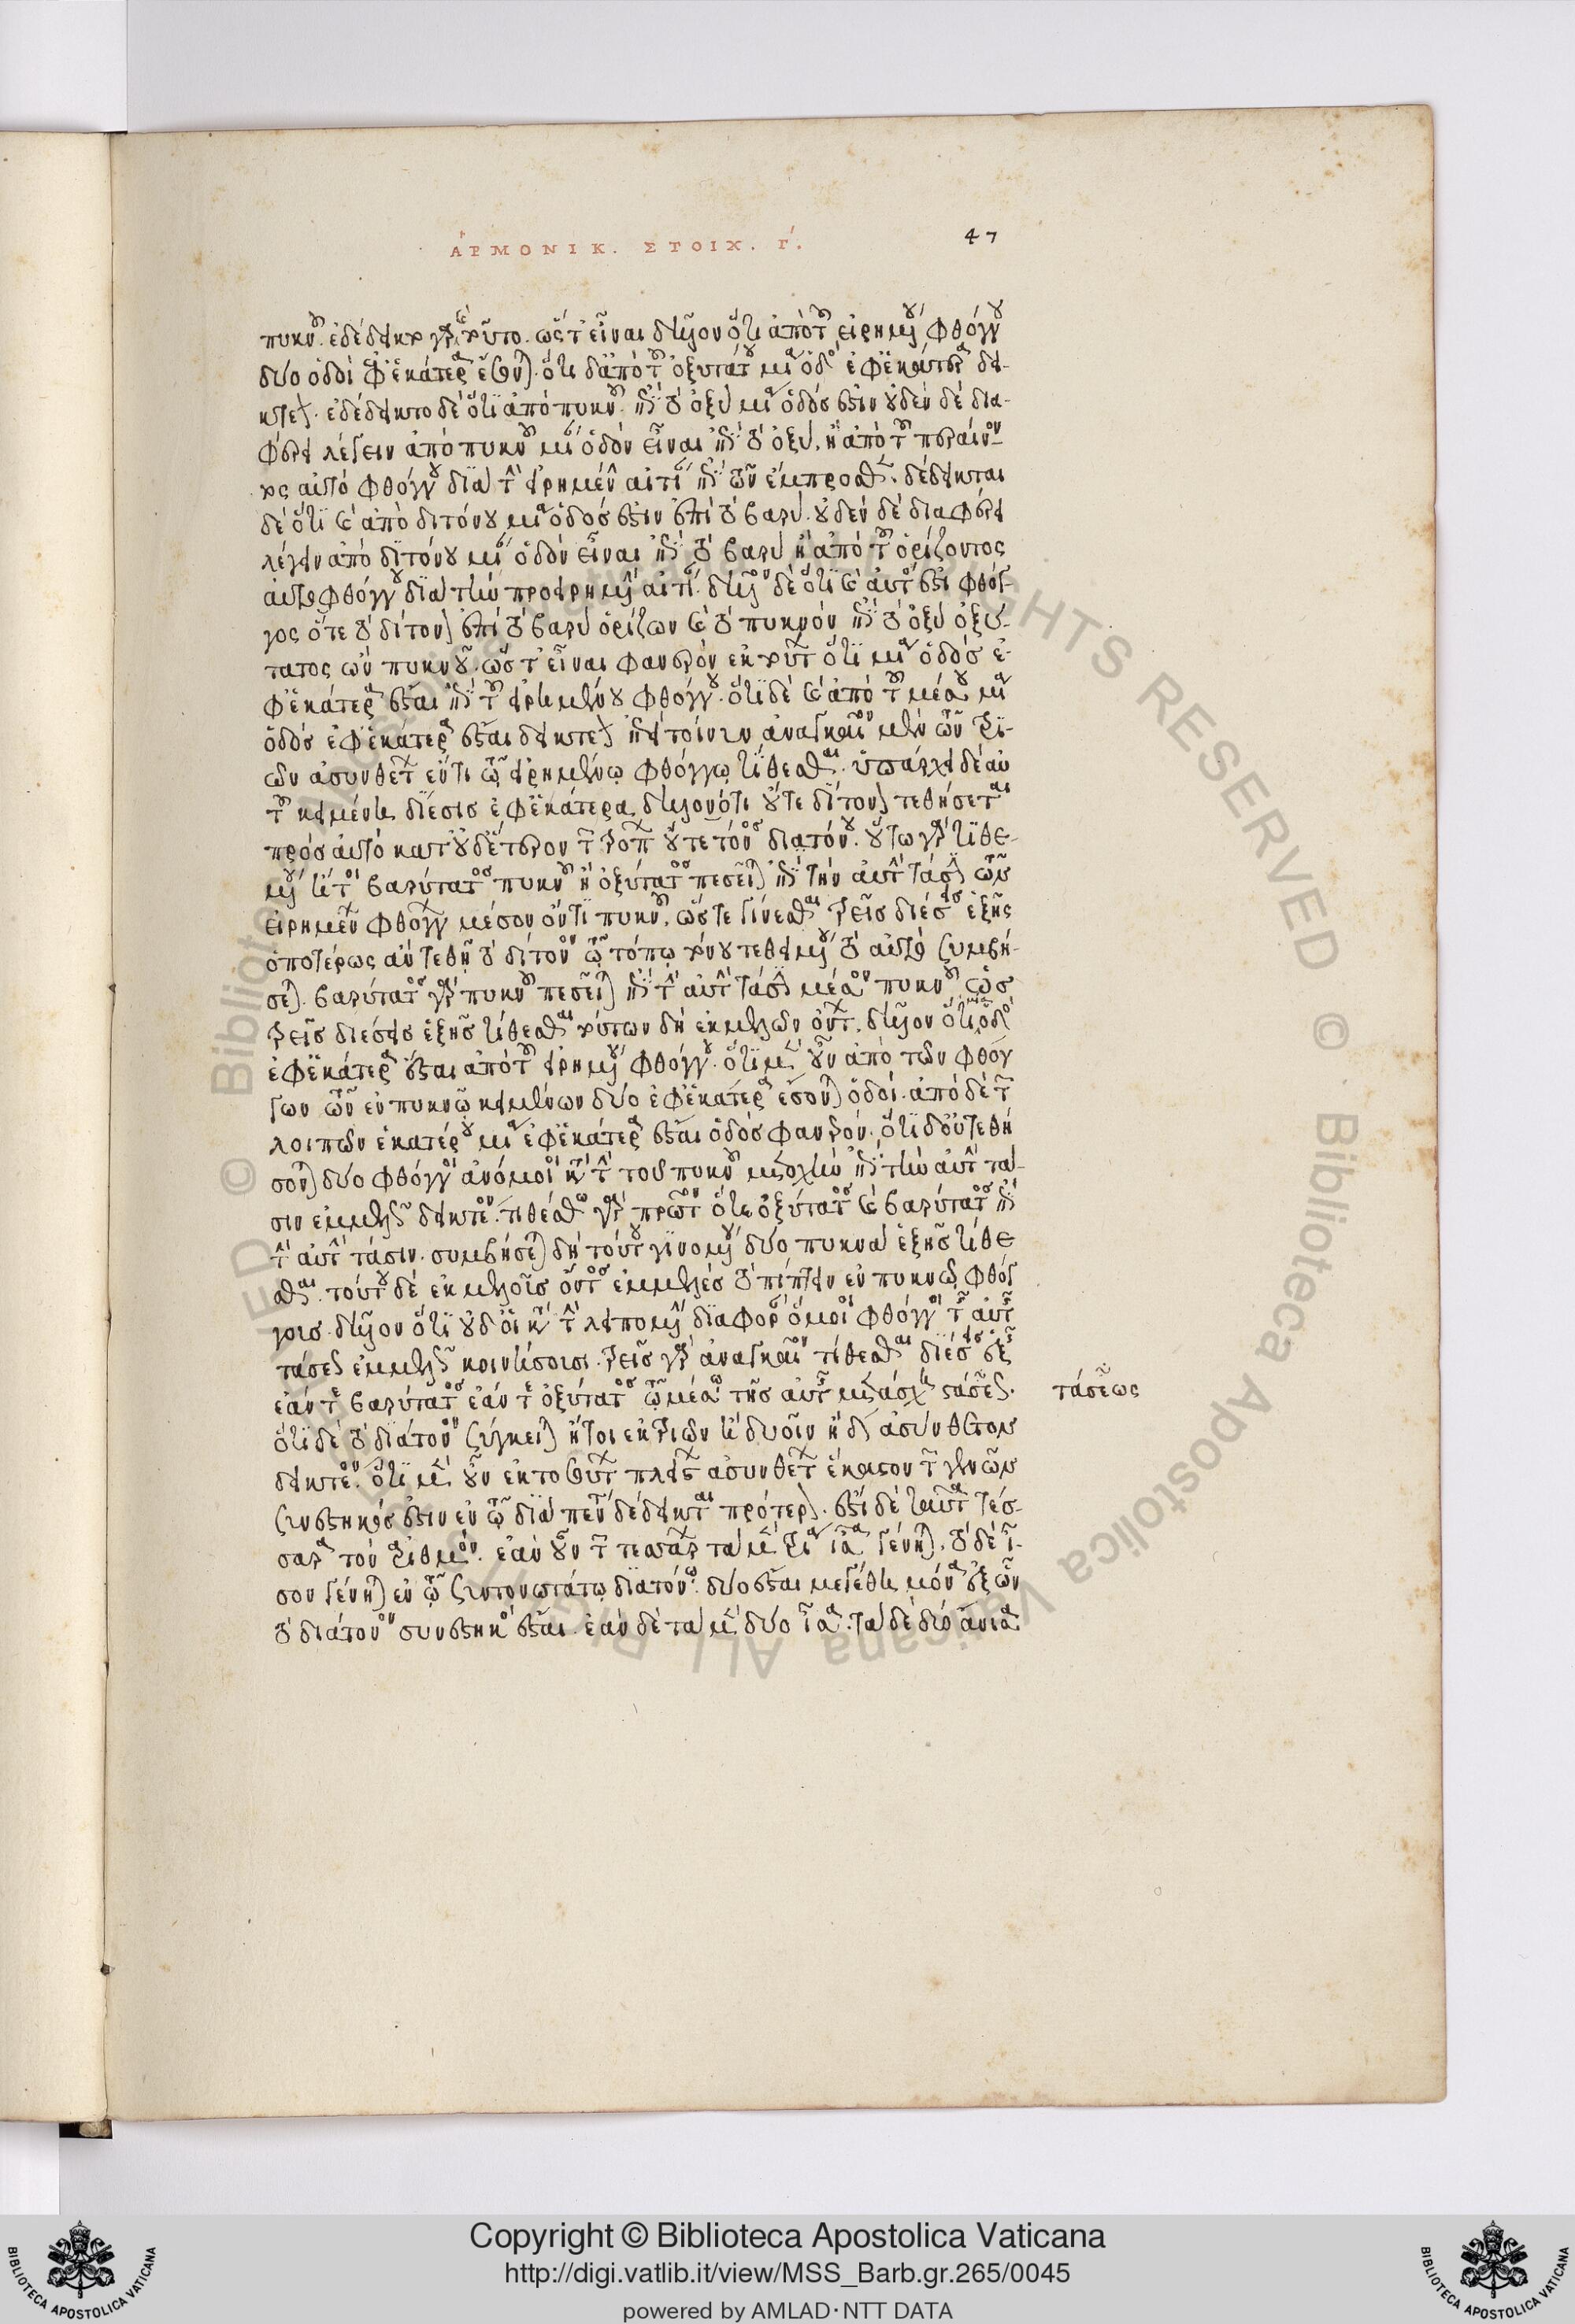 ἉΡΜΟΝΙΚ. ΣΤΟΙΧ. Γ΄.
47
πυκνοῦ. ἐδέδεικτο γὰρ καὶ τοῦτο. ὥστ' εἶναι δῆλον ὅτι ἀπὸ τοῦ εἰρημένου φθόγγου
δύο ὁδοὶ ἐφ' ἑκάτερα ἔσονται. ὅτι δ' ἀπὸ τοῦ ὀξυτάτου μία ὁδὸς ἐφ' ἑκάτερα δει-
κτέον. ἐδέδεικτο δὲ ὅτι ἀπὸ πυκνοῦ ἐπὶ τὸ ὀξὺ μία ὁδός ἐστιν οὐδὲν δὲ δια-
φέρει λέγειν ἀπὸ πυκνοῦ μίαν ὁδὸν εἶναι ἐπὶ τὸ ὀξὺ, ἢ ἀπὸ τοῦ περαίνον-
τος αὐτὸ φθόγγου διὰ τὴν εἰρημένην αἰτίαν ἐπὶ τῶν ἔμπροσθεν. δέδεικται
δὲ ὅτι καὶ ἀπὸ διτόνου μία ὁδός ἐστιν ἐπὶ τὸ βαρύ. οὐδὲν δὲ διαφέρει
λέγειν ἀπὸ διτόνου μίαν ὁδὸν εἶναι ἐπὶ τὸ βαρὺ ἢ ἀπὸ τοῦ ὁρίζοντος
αὐτὸ φθόγγου διὰ τὴν προειρημένην αἰτίαν. δῆλον δὲ ὅτι καὶ αὐτός ἐστι φθόγ-
γος ὅ τε τὸ δίτονον ἐπὶ τὸ βαρὺ ὁρίζων καὶ τὸ πυκνὸν ἐπὶ τὸ ὀξὺ ὀξύ-
τατος ὢν πυκνοῦ. ὥστ' εἶναι φανερὸν ἐκ τούτων ὅτι μία ὁδὸς ἐ-
φ' ἑκάτερα ἔσται ἐπὶ τοῦ εἰρημένου φθόγγου. ὅτι δὲ καὶ ἀπὸ τοῦ μέσου μία
ὁδὸς ἐφ' ἑκάτερα ἔσται δεικτέον ἐπεὶ τοίνυν ἀναγκαῖον μὲν τῶν τρι-
ῶν ἀσυνθέτων ἕν τι τῷ εἰρημένῳ φθόγγῳ τίθεσθαι. ὑπάρχει δὲ αὐ
τοῦ κειμένη δίεσις ἐφ' ἑκάτερα, δῆλον ὅτι οὔτε δίτονον τεθήσεται
πρὸς αὐτὸ κατ' οὐδέτερον τῶν τρόπων οὔτε τόνος διατόνου. οὕτω γὰρ τιθε-
μένου ἤτοι βαρύτατος πυκνοῦ ἢ ὀξύτατος πεσεῖται ἐπὶ τὴν αὐτὴν τάσιν τῶν
εἰρημένων φθόγγων μέσον ὄντι πυκνοῦ, ὥστε γίνεσθαι τρεῖς διέσεις ἑξῆς
ὁποτέρως ἂν τεθῇ τὸ δίτονον τῷ τόπῳ τόνου τεθειμένου τὸ αὐτὸ συμβή-
σεται. βαρύτατος γὰρ πυκνοῦ πεσεῖται ἐπὶ τὴν αὐτὴν τάσιν μέσον πυκνοῦ ὡς
τρεῖς διέσεις ἑξῆς τίθεσθαι τούτων δὴ ἐκμελῶν ὄντων, δῆλον ὅτι μία ὁδὸς
ἐφ' ἑκάτερα ἔσται ἀπὸ τοῦ εἰρημένου φθόγγου. ὅτι μὲν οὖν ἀπὸ τῶν φθόγ
γων τῶν ἐν πυκνῷ κειμένων δύο ἐφ' ἑκάτερα ἔσονται ὁδοὶ. ἀπὸ δὲ τῶν
λοιπῶν ἑκατέρου μία ἐφ' ἑκάτερα ἔσται ὁδὸς φανερόν. ὅτι δ' οὐ τεθή
σονται δύο φθόγγοι ἀνόμοιοι κατὰ τὴν τοῦ πυκνοῦ μετοχὴν ἐπὶ τὴν αὐτὴν τά-
σιν ἐμμελῶς δεικτέον. τιθέσθω γὰρ πρῶτον ὅτε ὀξύτατος καὶ βαρύτατος ἐπὶ
τὴν αὐτὴν τάσιν. συμβήσεται δὴ τούτου γινομένου δύο πυκνὰ ἑξῆς τίθε
σθαι. τούτου δὲ ἐκμελοῖς ὄντος ἐμμελὲς τὸ πίπτειν ἐν πυκνῷ φθόγ
γοις. δῆλον ὅτι οὐδ' οἱ κατὰ τὴν λειπομένην διαφορὰν ὅμοιοι φθόγγοι τῆς αὐτῆς
τάσεως ἐμμελῶς κοινωνήσουσι. τρεῖς γὰρ ἀναγκαῖον τίθεσθαι διέσεις ἑξῆς
ἐάν τε βαρύτατος ἐάν τε ὀξύτατος τῷ μέσῳ τῆς αὐτῆς μετάσχῃ στάσεως.
τάσεως
ὅτι δὲ τὸ διάτονον σύγκειται ἤτοι ἐκ τριῶν ἢ δυοῖν ἢ δ' ἀσυνθέτων
δεικτέον. ὅτι μὲν οὖν ἐκ τοσούτων πλείστων ἀσυνθέτων ἕκαστον τῶν γενῶν
συνεστηκός ἐστιν ἐν τῷ διὰ πέντε δέδεικται πρότερον. ἔστι δὲ ταῦτα τέσ-
σαρα τὸν ἀριθμόν. ἐὰν οὖν τῶν τεσσάρων τὰ μὲν τρία ἴσα γένηται, τὸ δὲ ἴ-
σον γένηται ἐν τῷ συντονωτάτῳ διατόνῳ. δύο ἔσται μεγέθη μόνα ἐξ ὧν
τὸ διάτονον συνεστηκὸς ἔσται. ἐὰν δὲ τὰ μὲν δύο ἴσα. τὰ δὲ δύο ἄνισα
Copyright © Biblioteca Apostolica Vaticana
http://digi.vatlib.it/view/MSS_Barb.gr.265/0045
powered by AMLAD·NTT DATA